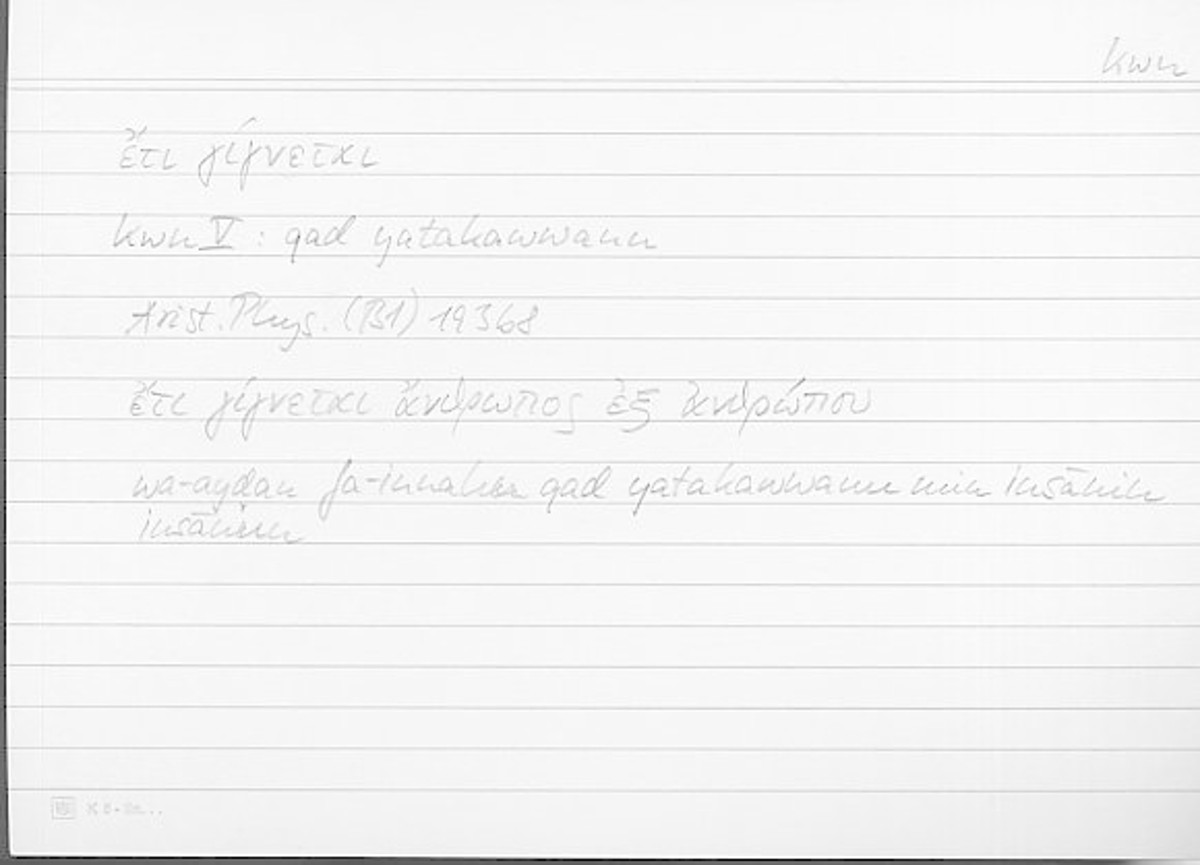 kwn
ἔτι γίγνεται
kwn V : qad yatakawwanu
Arist. Phys. (B1) 193b8
ἔτι γίγνεται ἄνθρωπος ἐξ ἀνθρώπου
wa-aydan fa-innahu qad yatakawwanu min insānin
insānun